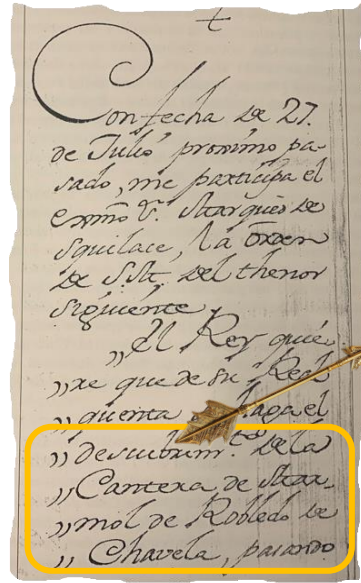 Con fecha de 27.
de Julio proximo pa-
sado, me participa el
exmõ Sr. Marques de
Squilace, la orden
de S.M. del thenor
siguiente
„ El Rey quie-
„ re que de su Real
„ quenta haga el
„ descubrimto. de la
„ Cantera de Mar-
„ mol de Robledo de
„ Chavela, pasando